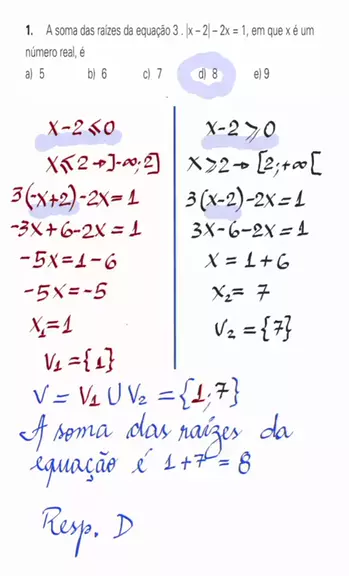 1. A soma das raízes da equação 3 . |x – 2| – 2x = 1, em que x é um
número real, é
a) 5 b) 6 c) 7 d) 8 e) 9
x-2⩽0
x⩽2→]-∞;2]
3(-x+2)-2x=1
-3x+6-2x=1
-5x=1-6
-5x=-5
x₁=1
V₁={1}
x-2⩾0
x⩾2→[2;+∞[
3(x-2)-2x=1
3x-6-2x=1
x=1+6
x₂=7
V₂={7}
V=V₁∪V₂={1;7}
A soma das raízes da
equação é 1+7=8
Resp. D